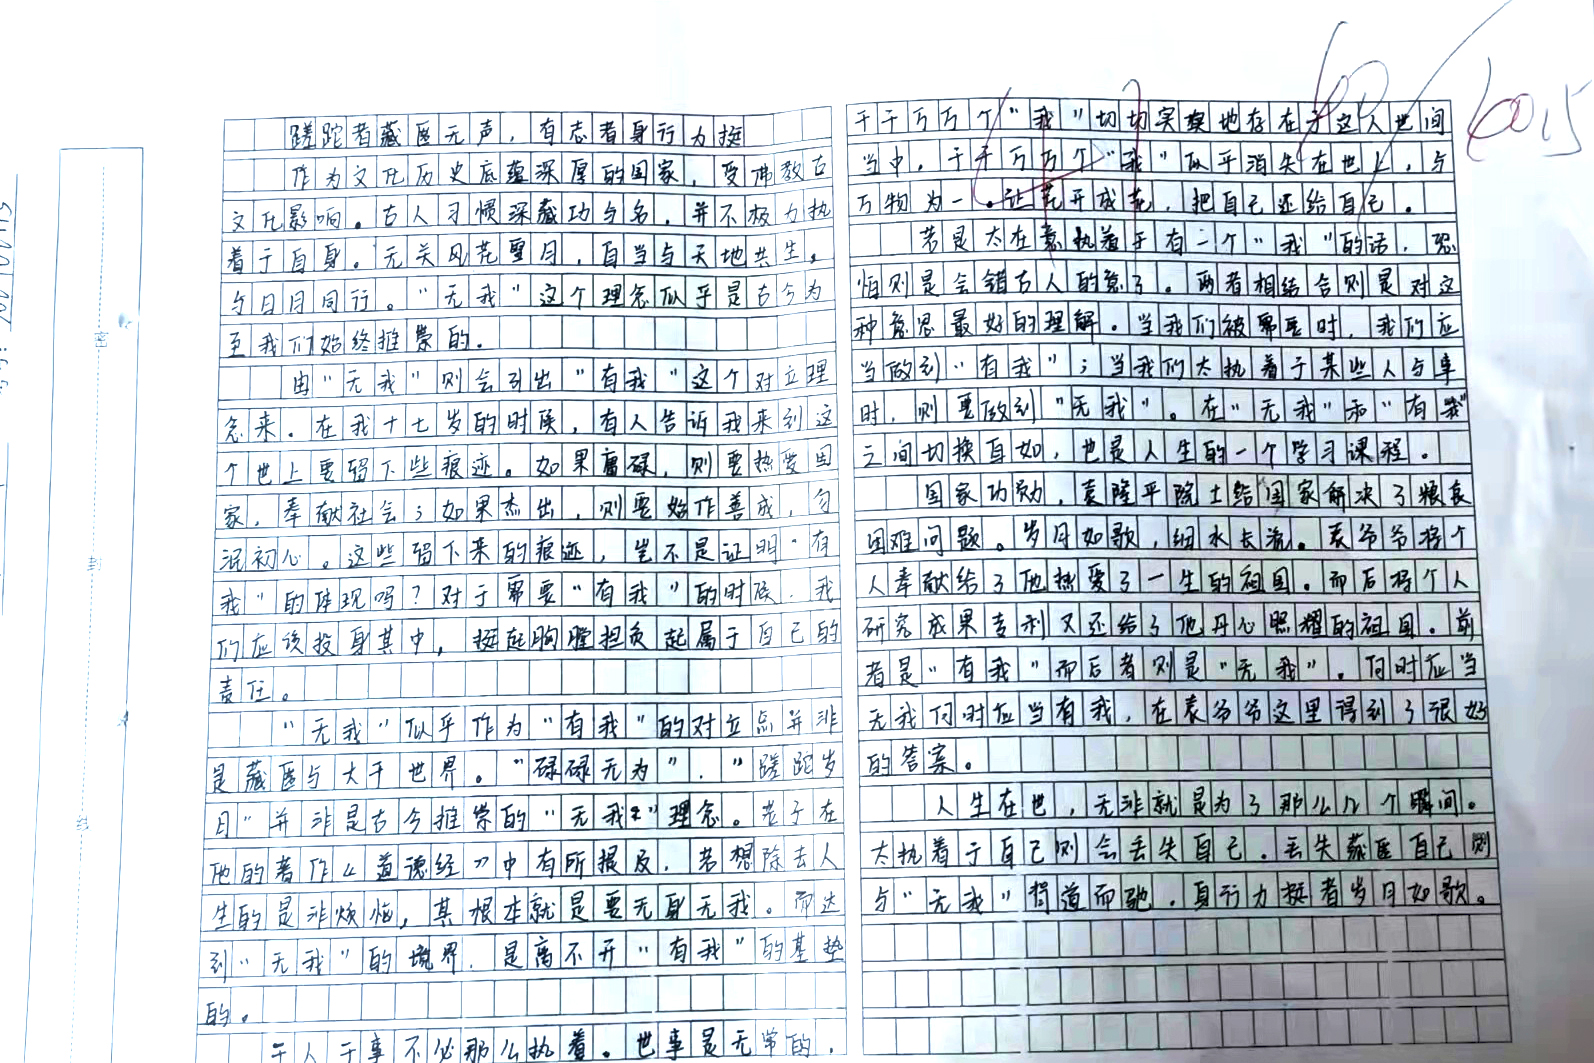 蹉跎者藏匿无声，有志者身行力挺
作为文化历史底蕴深厚的国家，受佛教古
文化影响。古人习惯深藏功与名，并不极力执
着于自身。无关风花雪月，自当与天地共生。
与日月同行。“无我”这个理念似乎是古今为
至我们始终推崇的。
由“无我”则会引出“有我”这个对立理
念来。在我十七岁的时候，有人告诉我来到这
个世上要留下些痕迹。如果庸碌，则要热爱国
家，奉献社会；如果杰出，则要始作善成，勿
泯初心。这些留下来的痕迹，岂不是证明“有
我”的体现吗？对于需要“有我”的时候，我
们应该投身其中，挺起胸膛担负起属于自己的
责任。
“无我”似乎作为“有我”的对立点并非
是藏匿与大千世界。“碌碌无为”，“蹉跎岁
月”并非是古今推崇的“无我”理念。老子在
他的著作《道德经》中有所提及，若想除去人
生的是非烦恼，其根本就是要无身无我。而达
到“无我”的境界，是离不开“有我”的基垫
的。
于人于事不必那么执着。世事是无常的，
千千万万个“我”切切实实地存在于这人世间
当中，千千万万个“我”似乎消失在世上，与
万物为一。让花开成花，把自己还给自己。
若是太在意执着于有一个“我”的话，恐
怕则是会错古人的意了。两者相结合则是对这
种意思最好的理解。当我们被需要时，我们应
当做到“有我”；当我们太执着于某些人与事
时，则要做到“无我”。在“无我”和“有我”
之间切换自如，也是人生的一个学习课程。
国家功勋，袁隆平院士给国家解决了粮食
困难问题。岁月如歌，细水长流。袁爷爷将个
人奉献给了他热爱了一生的祖国。而后将个人
研究成果专利又还给了他丹心照耀的祖国。前
者是“有我”而后者则是“无我”。何时应当
无我何时应当有我，在袁爷爷这里得到了很好
的答案。
人生在世，无非就是为了那么几个瞬间。
太执着于自己则会丢失自己。丢失藏匿自己则
与“无我”背道而驰，身行力挺者岁月如歌。
密
封